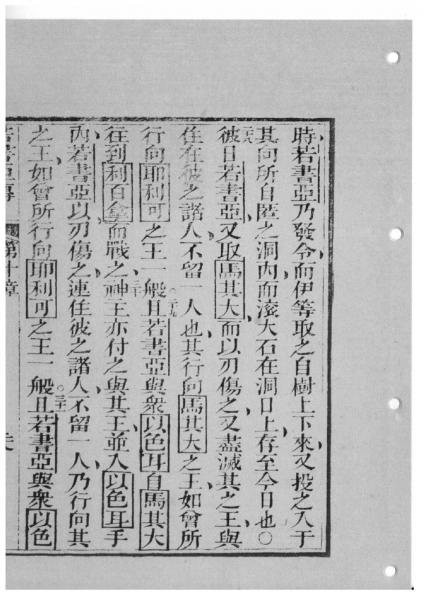 時若書亞乃發令而伊等取之自樹上下來又投之入于
其向所自匿之洞內而滾大石在洞口上存至今日也○
二八
彼日若書亞又取馬其大而以刃傷之又盡滅其之王與
住在彼之諸人不留一人也其行向馬其大之王如曾所
二九
行向耶利可之王一般且若書亞與眾以色耳自馬其大
往到利百拿而戰之神王亦付之與其王並入以色耳手
三十
內若書亞以刃傷之連住彼之諸人不留一人乃行向其
之王如曾所行向耶利可之王一般且若書亞與眾以色
三一
若書亞傳
第十章